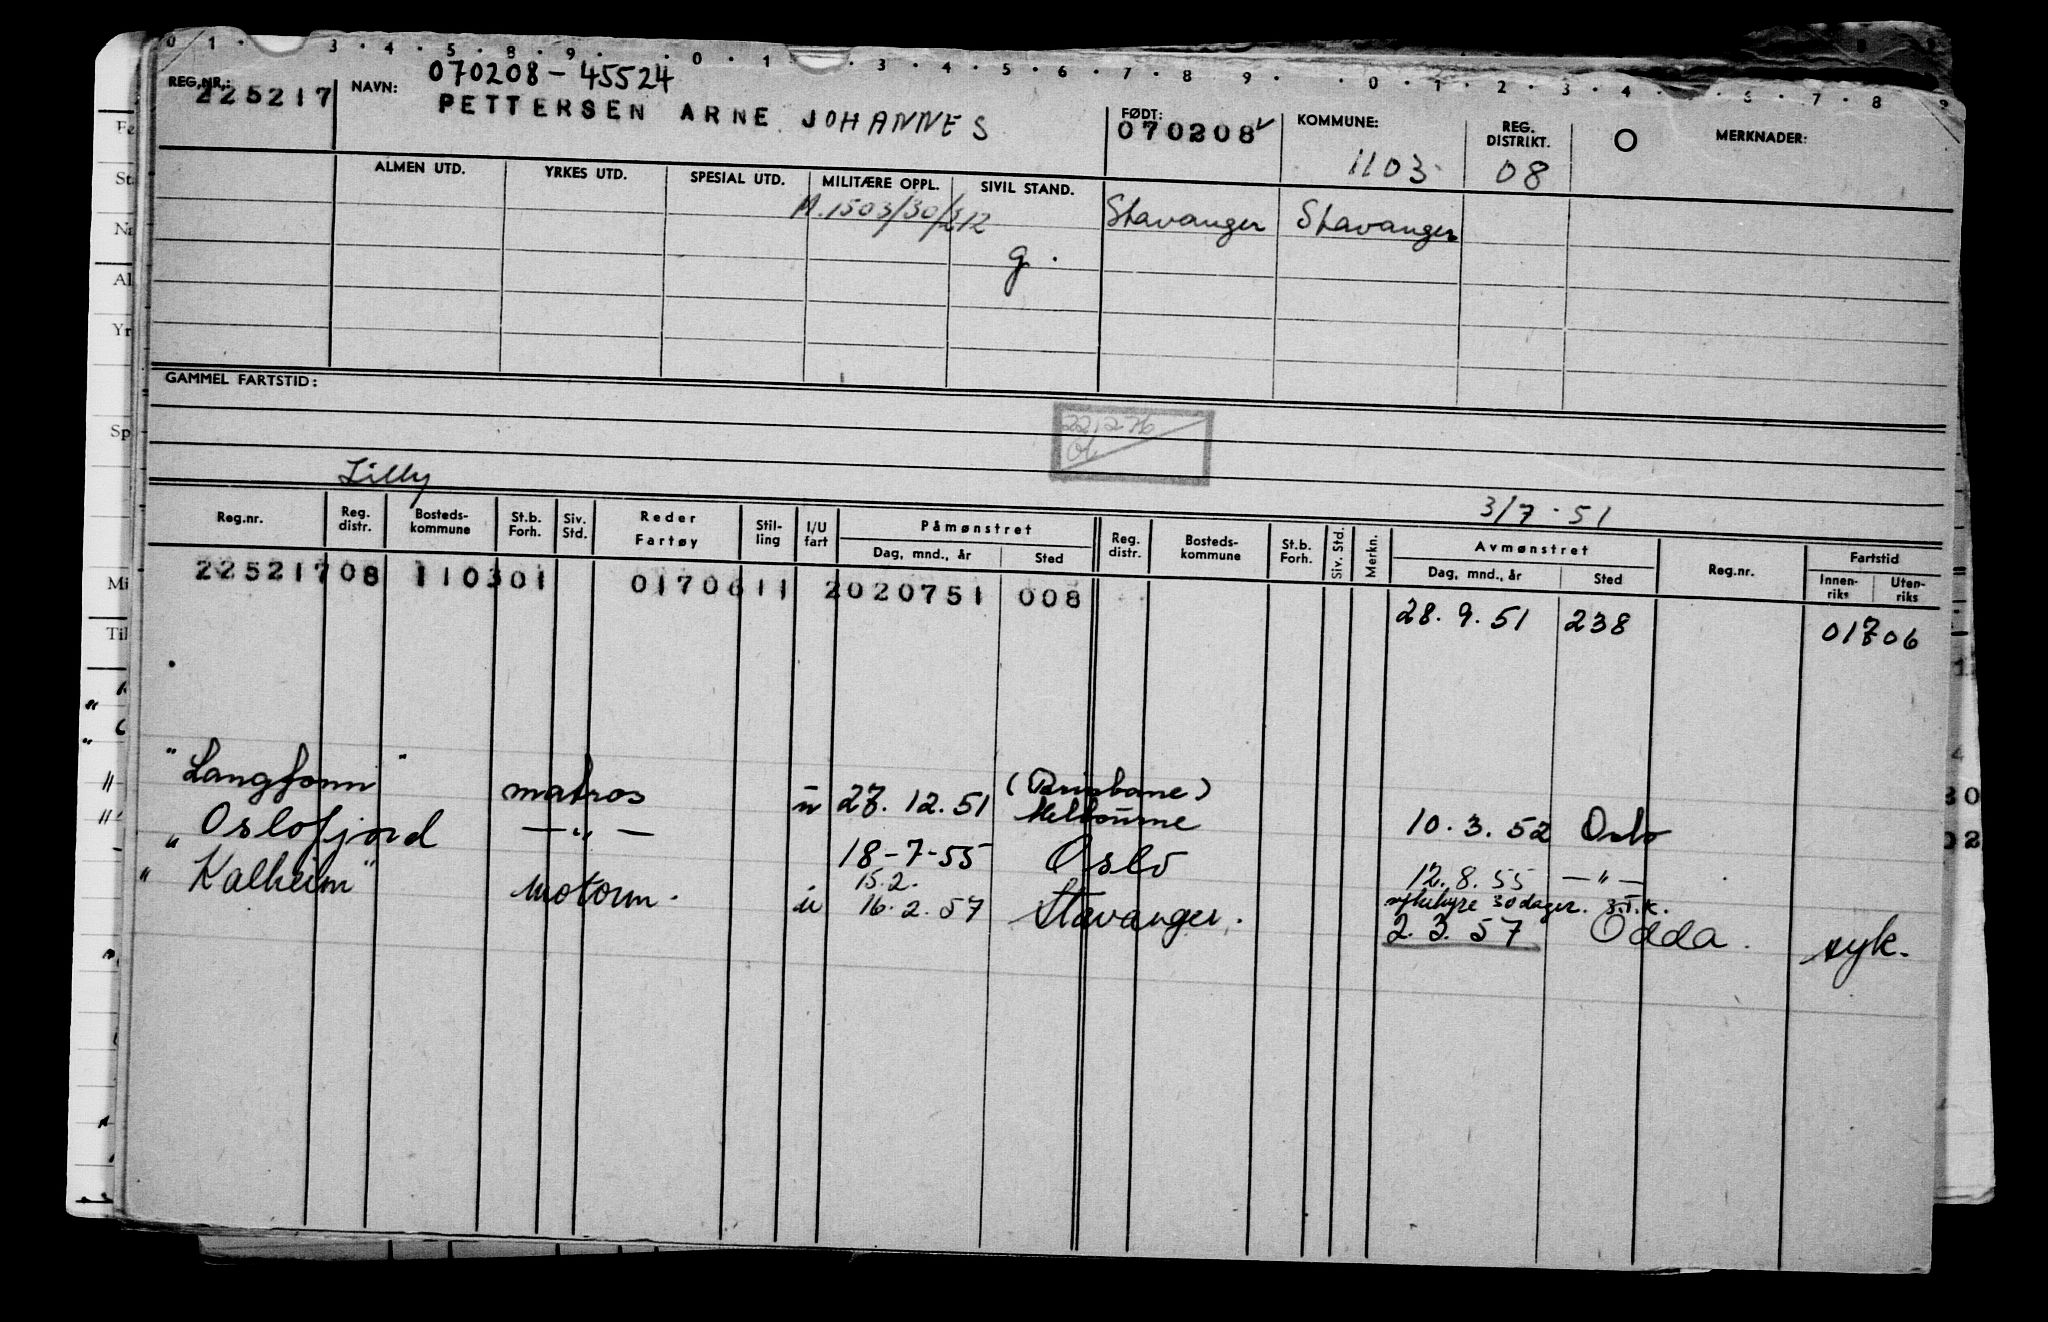 0 1 . 3 . 4 . 5 . 8 . 9 . . 0 . 1 . 3 . 4 . 5 . 6 . 7 . 8 . 9 . . 0 . 1 . 2 . 3 . 4 . . 6 . 7 . 8 9
070208-45524
REG.NR.: 225217 NAVN: PETTERSEN ARNE JOHANNES FØDT: 070208 KOMMUNE: 1103 REG. DISTRIKT. 08 O MERKNADER:
ALMEN UTD. YRKES UTD. SPESIAL UTD. MILITÆRE OPPL. SIVIL STAND.
Stavanger Stavanger
g.
GAMMEL FARTSTID:
Lilly
3/7-51
Reg.nr. Reg. distr. Bosteds-kommune St.b. Forh. Siv. Std. Reder Fartøy Stil-ling I/U fart Påmønstret Dag, mnd., år Sted Reg. distr. Bosteds-kommune St.b. Forh. Siv. Std. Merkn. Avmønstret Dag, mnd., år Sted Reg.nr. Fartstid Innen-riks Uten-riks
225217 08 1103 01 0170611 2020751 008 28.9.51 238
"Langfonn" matros u 27.12.51 (Brisbane) Melbourne 10.3.52 Oslo
" Oslofjord — " — 18-7-55 Oslo 12.8.55 — " —
15.2. sykehyre 30 dager. J.T.K.
"Kalheim" motorm. u 16.2.57 Stavanger. 2.3.57 Odda. syk.